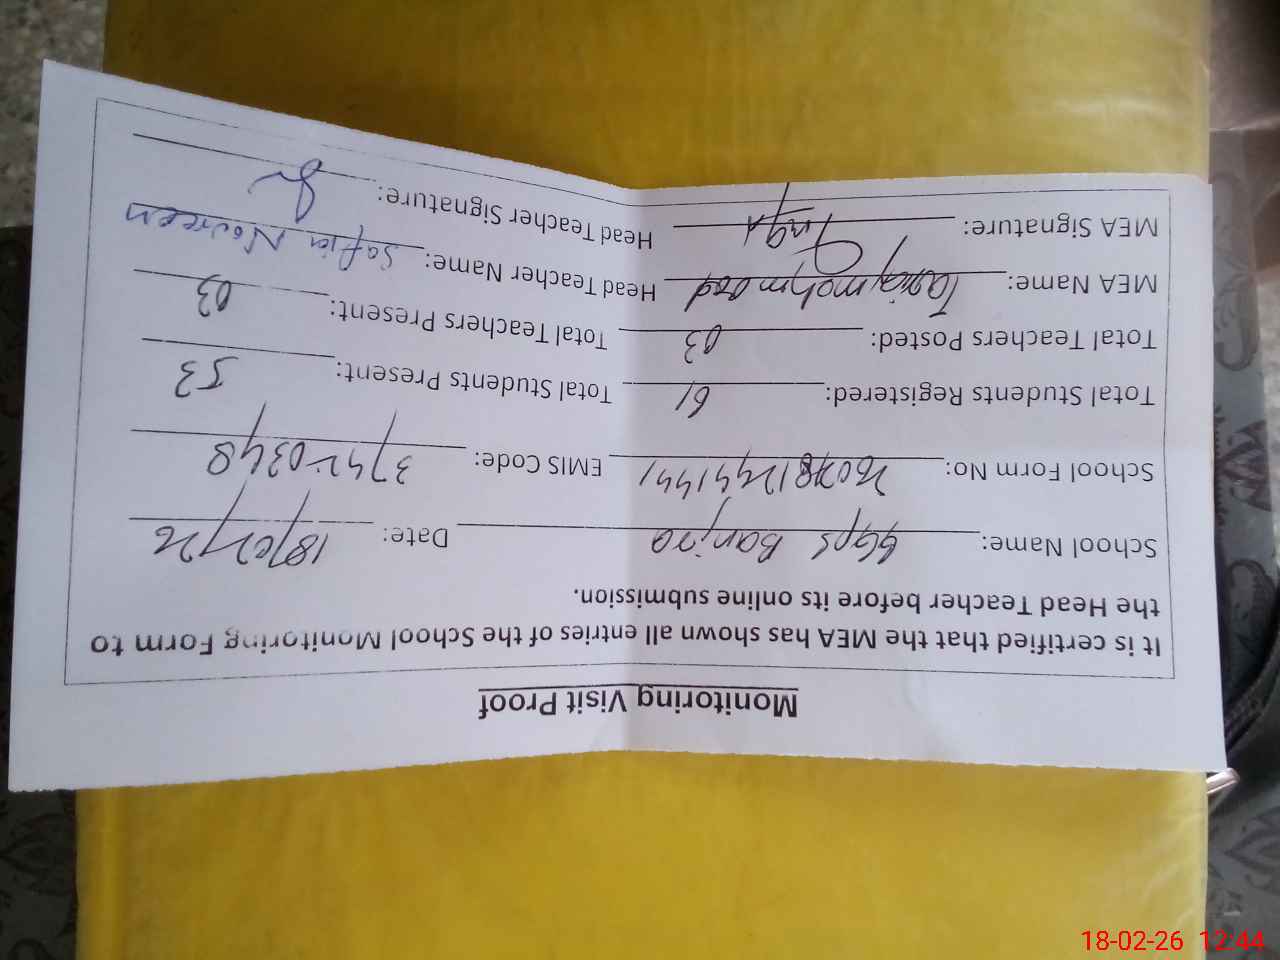 Monitoring Visit Proof
It is certified that the MEA has shown all entries of the School Monitoring Form to
the Head Teacher before its online submission.
School Name: GGPS Banjra Date: 18/02/26
School Form No: EMIS Code: 37420348
Total Students Registered: 61 Total Students Present: 53
Total Teachers Posted: 03 Total Teachers Present: 03
MEA Name: Tariq mahmood Head Teacher Name: Safia Noreen
MEA Signature: Head Teacher Signature:
18-02-26 12:44